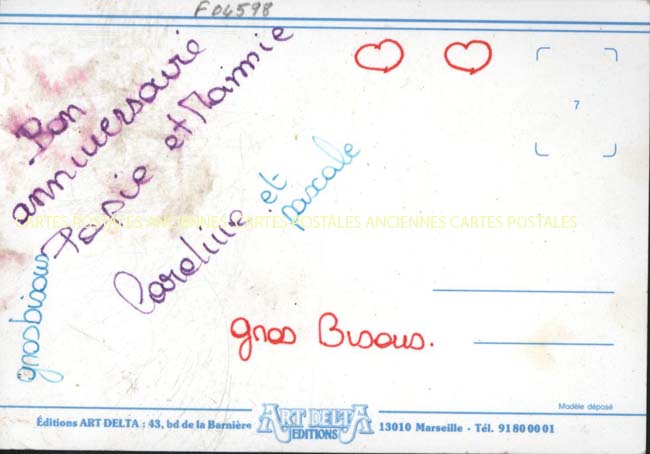 F 04598
7
Bon
anniversaire
Papie et Mammie
Caroline et
pascale
gros bisous
gros Bisous.
CARTES POSTALES ANCIENNES CARTES POSTALES ANCIENNES CARTES POSTALES
Modèle déposé
Éditions ART DELTA : 43, bd de la Barnière
ART DELTA
EDITIONS
13010 Marseille - Tél. 91 80 00 01